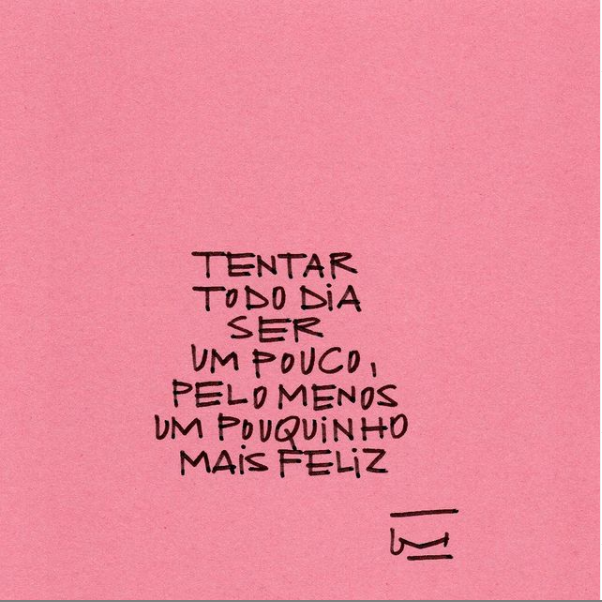 TENTAR
TODO DIA
SER
UM POUCO,
PELO MENOS
UM POUQUINHO
MAIS FELIZ